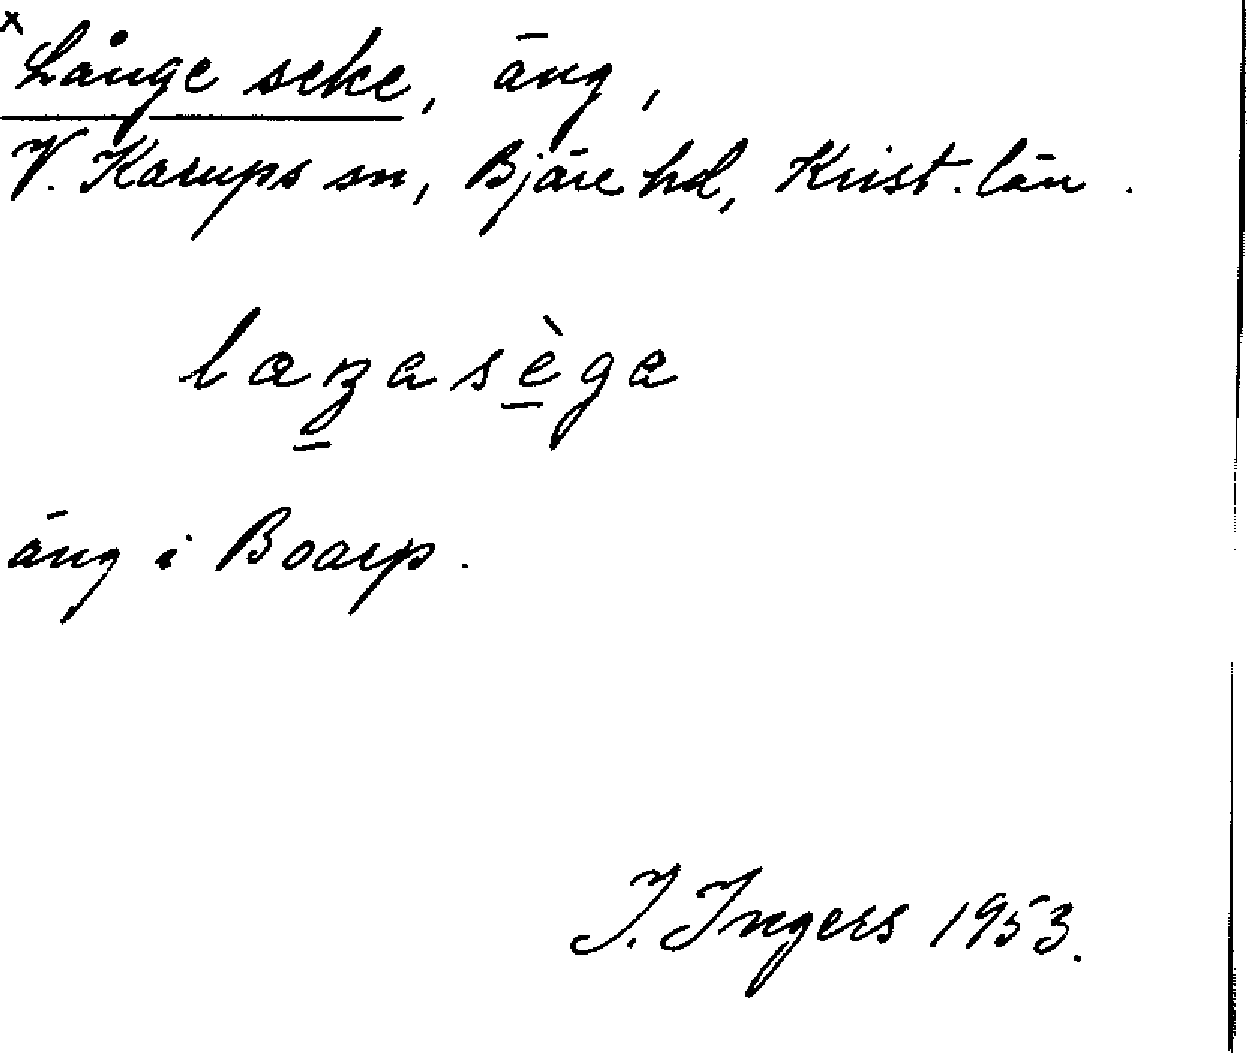 x
Långe seke, äng,
V. Karups sn, Bjäre hd, Krist. län.
laŋasège
äng i Boarp.
I. Ingers 1953.